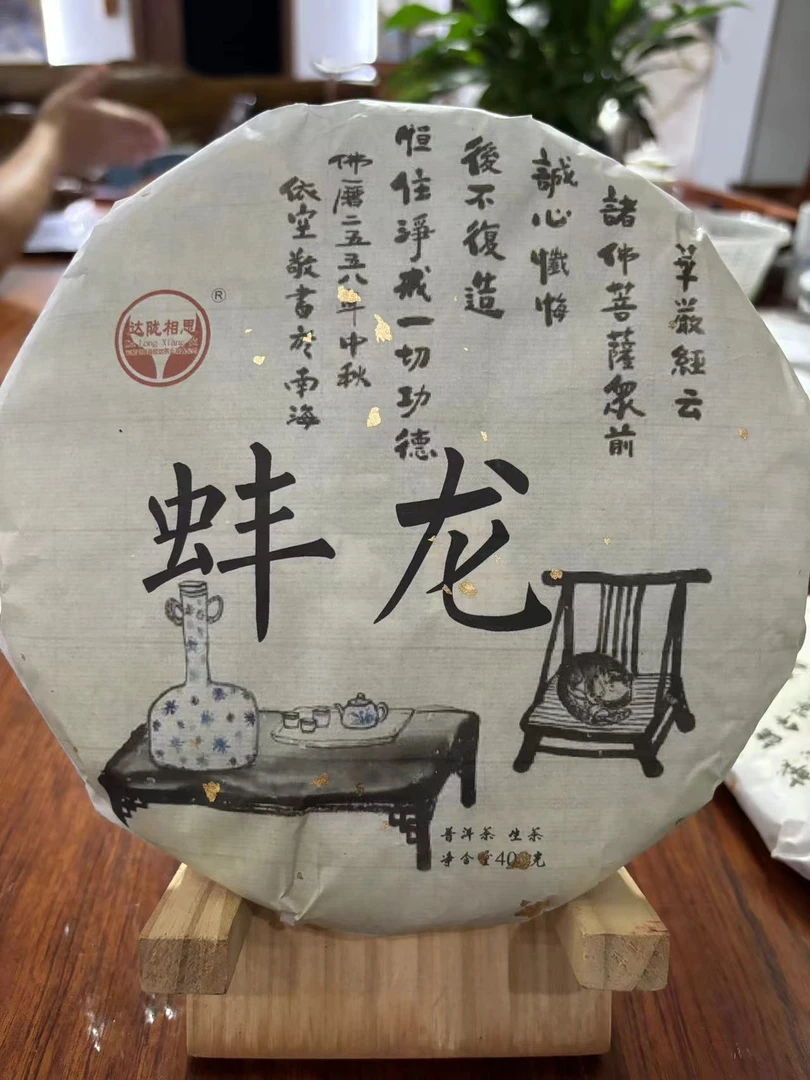 華嚴經云
諸佛菩薩衆前
誠心懺悔
後不復造
恒住淨戒一切功德
佛曆二五五八年中秋
依空敬書於南海
®
达陇相思
Long Xiang
蚌龙
普洱茶 生茶
净含量400克